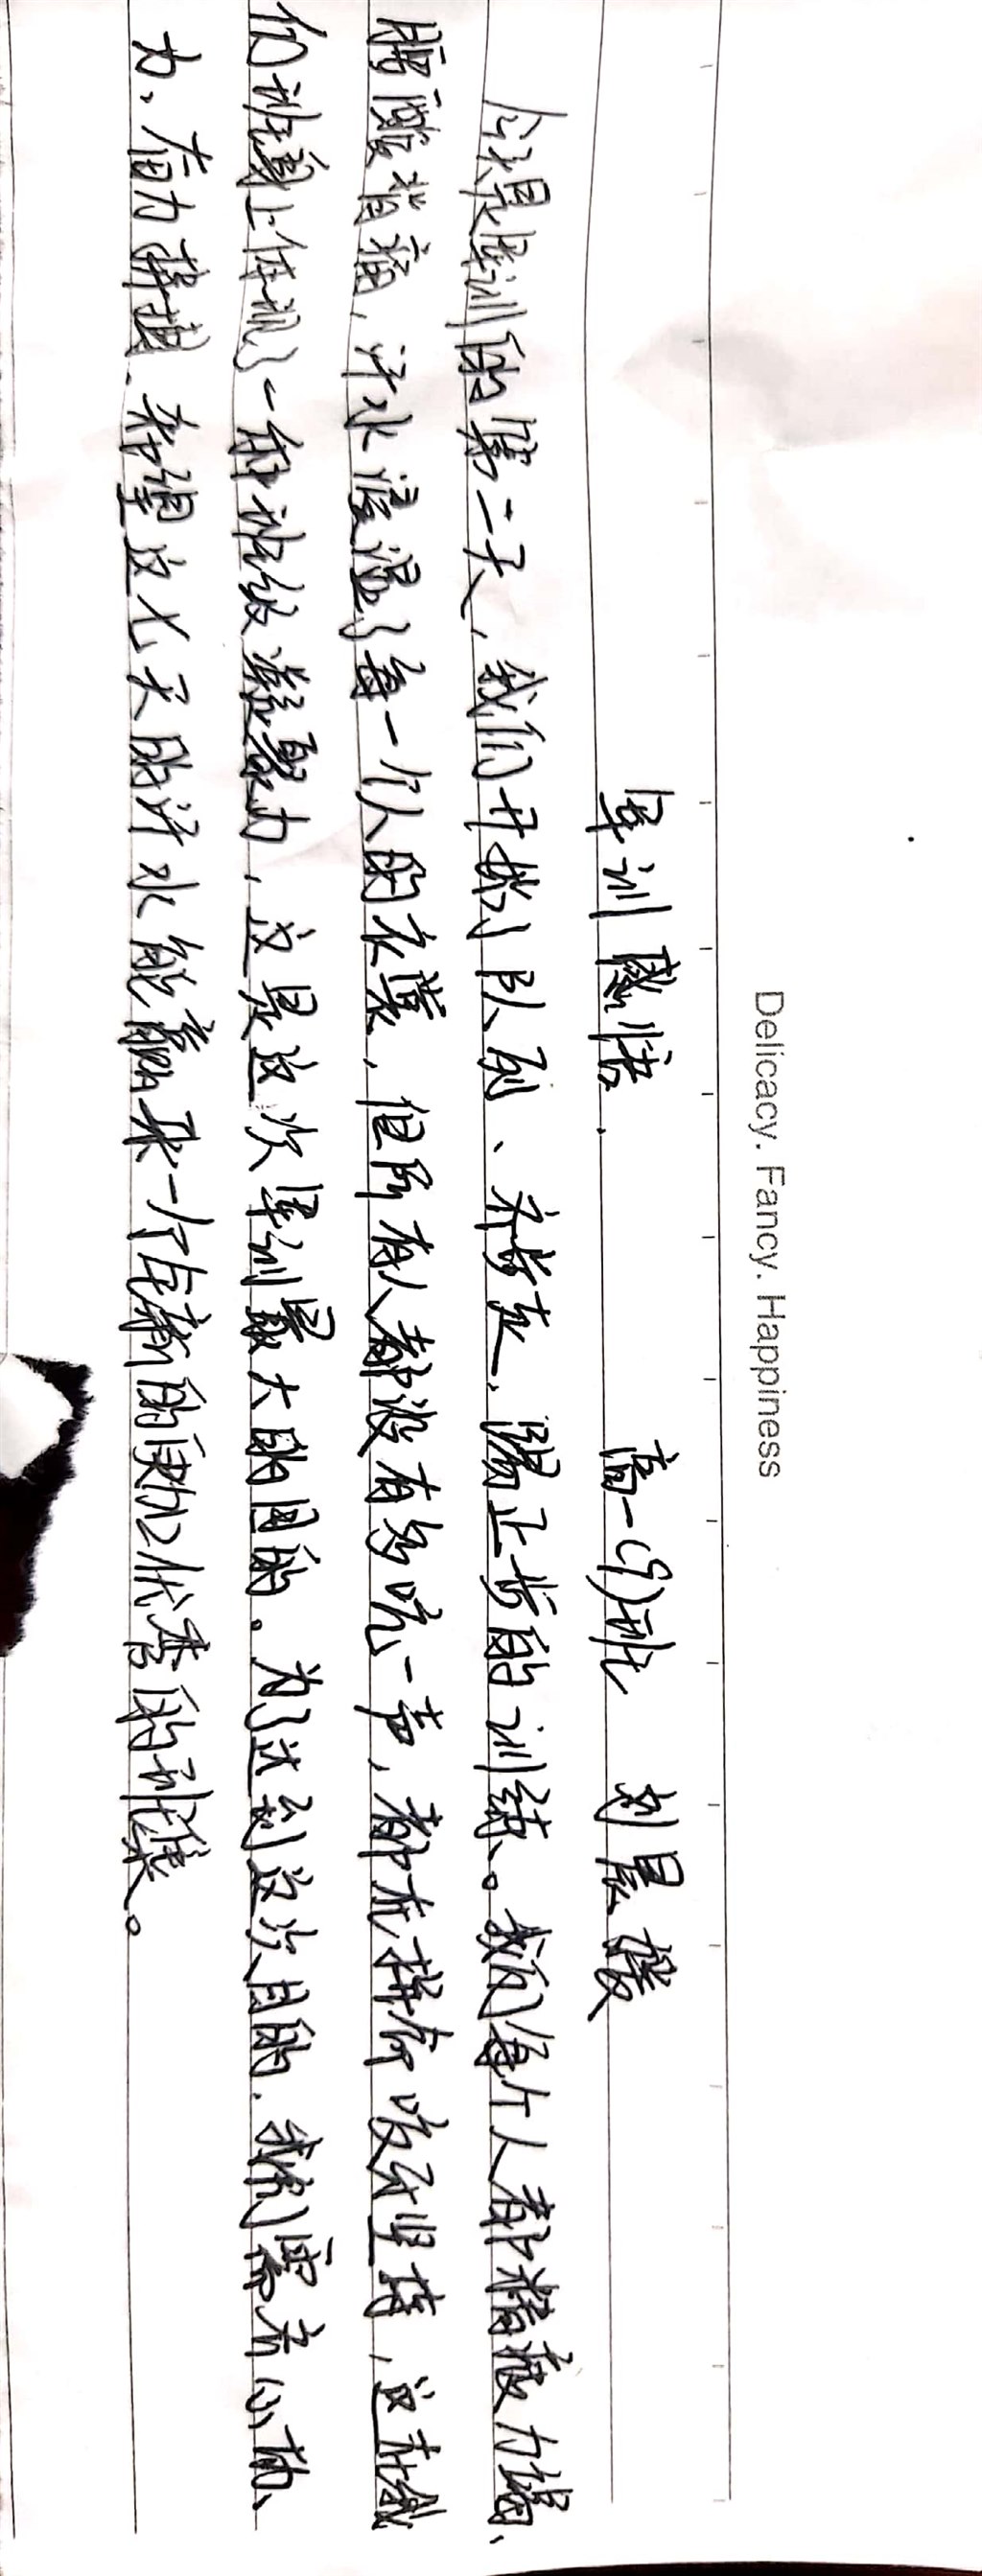 Delicacy. Fancy. Happiness
军训感悟. 高一(9)班 刘晨媛
今天是军训的第二天,我们开始了队列、齐步走、踢正步的训练。我们每个人都精疲力竭、
腰酸背痛,汗水浸湿了每一个人的衣裳,但所有人都没有多吭一声,都在拼命咬牙坚持,这在我
们班身上体现了一种班级凝聚力,这是这次军训最大的目的。为了达到这次目的,我们需齐心、协
力、奋力拼搏,希望这八天的汗水能赢来一个崭新的更加优秀的班集。